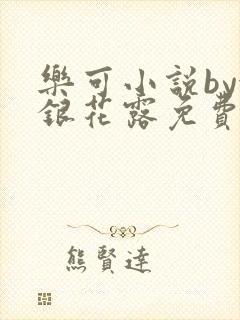 樂可小說by
銀花露免費
熊賢達